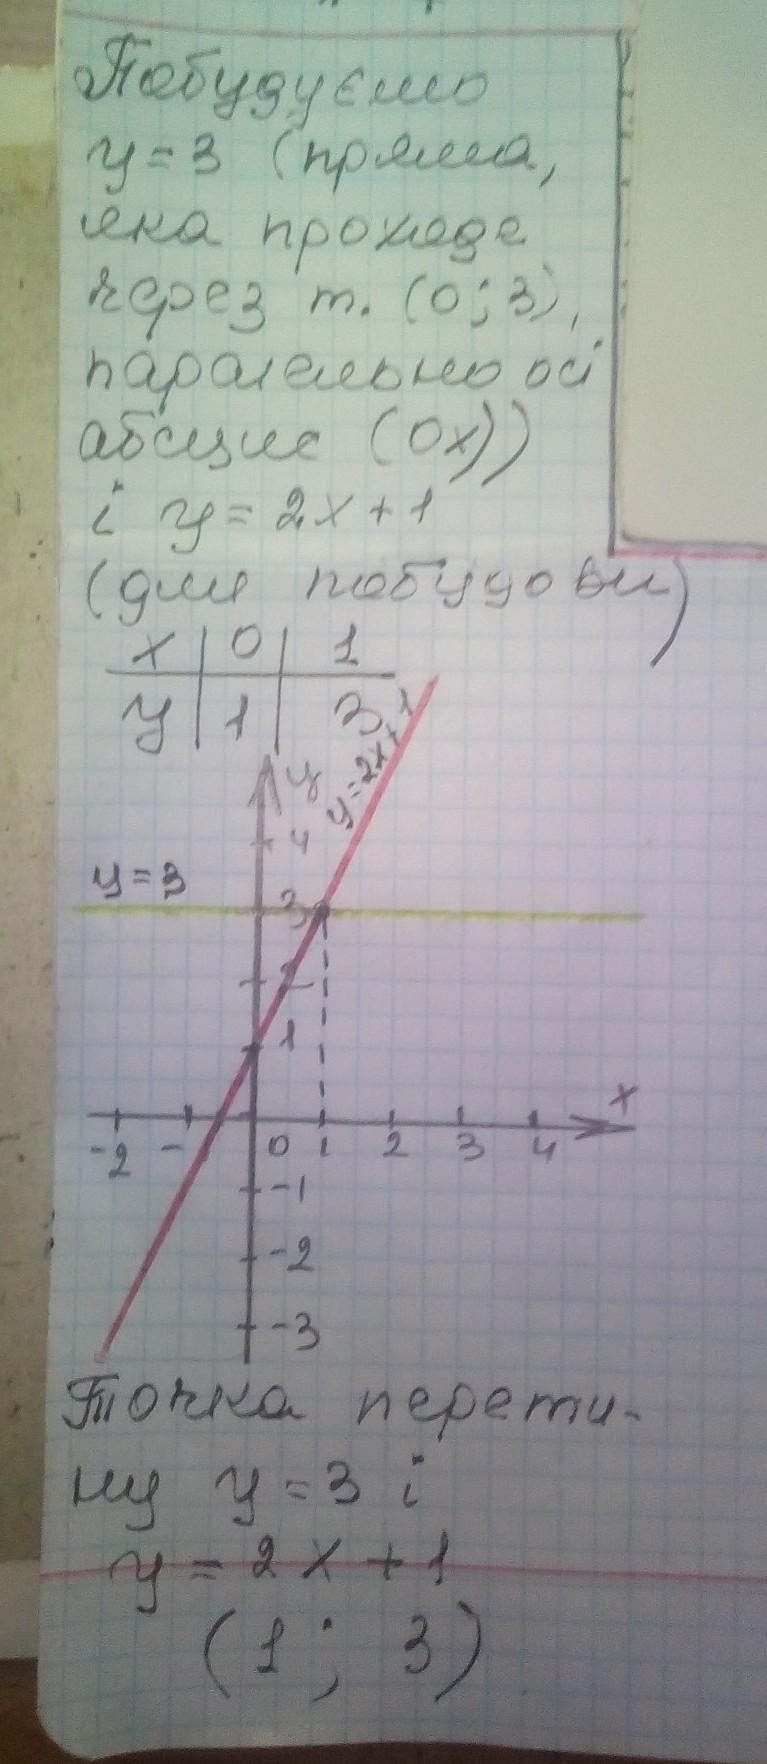 Побудуємо
y=3 (пряма,
яка проходе
через т. (0; 3),
паралельно осі
абсцис (Ох))
і y=2x+1
(для побудови)
x | 0 | 1
y | 1 | 3
y=2x+1
y
4
y=3
3
2
1
x
-2 - 0 1 2 3 4
-1
-2
-3
Точка перети-
ну y=3 і
y=2x+1
(1; 3)